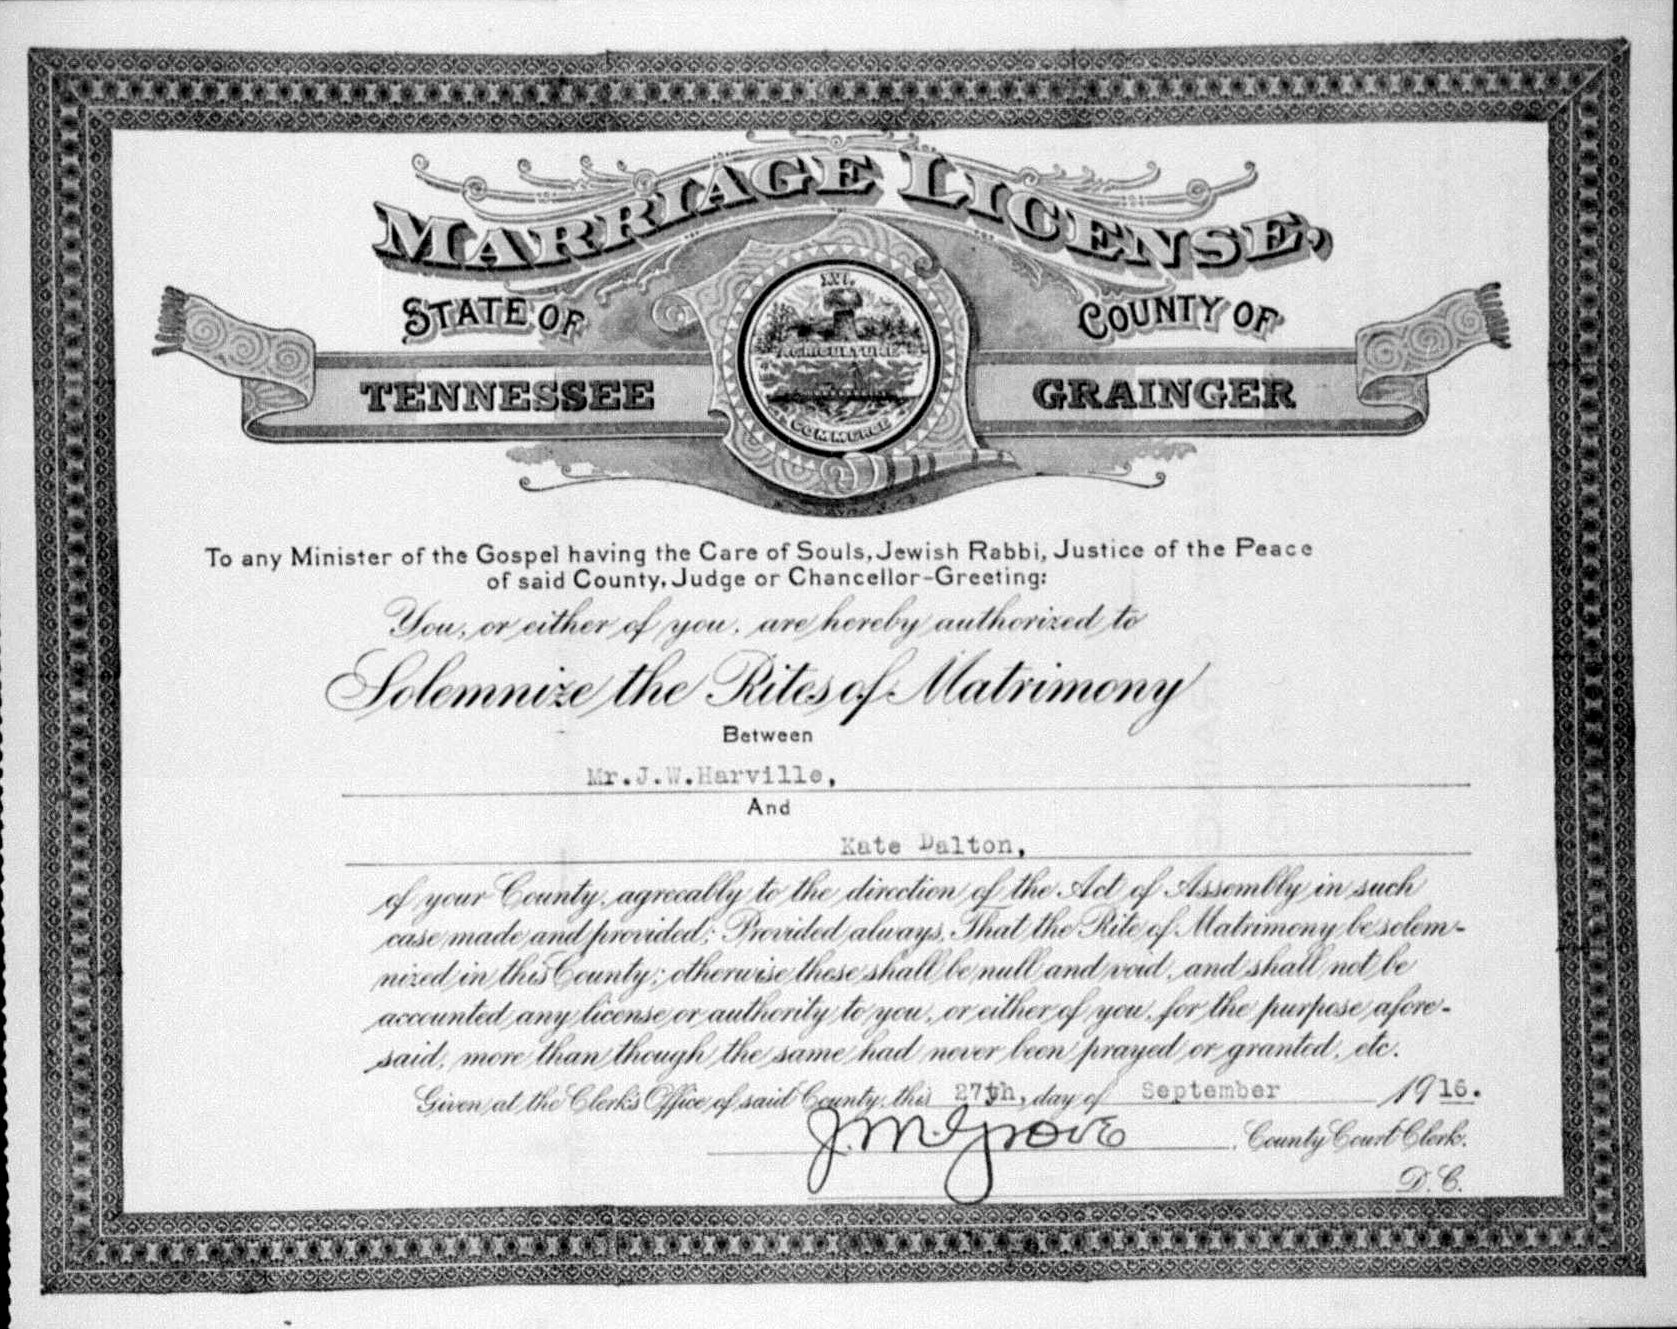 MARRIAGE LICENSE,
STATE OF
COUNTY OF
TENNESSEE
GRAINGER
XVI.
AGRICULTURE
COMMERCE
To any Minister of the Gospel having the Care of Souls, Jewish Rabbi, Justice of the Peace
of said County, Judge or Chancellor-Greeting:
You, or either of you, are hereby authorized to
Solemnize the Rites of Matrimony
Between
Mr.J.W.Harville,
And
Kate Dalton,
of your County, agreeably to the direction of the Act of Assembly in such
case made and provided; Provided always, That the Rite of Matrimony be solem-
nized in this County; otherwise these shall be null and void, and shall not be
accounted any license or authority to you, or either of you, for the purpose afore-
said, more than though the same had never been prayed or granted, etc.
Given at the Clerk's Office of said County, this 27th, day of September 1916.
J. M. Grove County Court Clerk.
D. C.